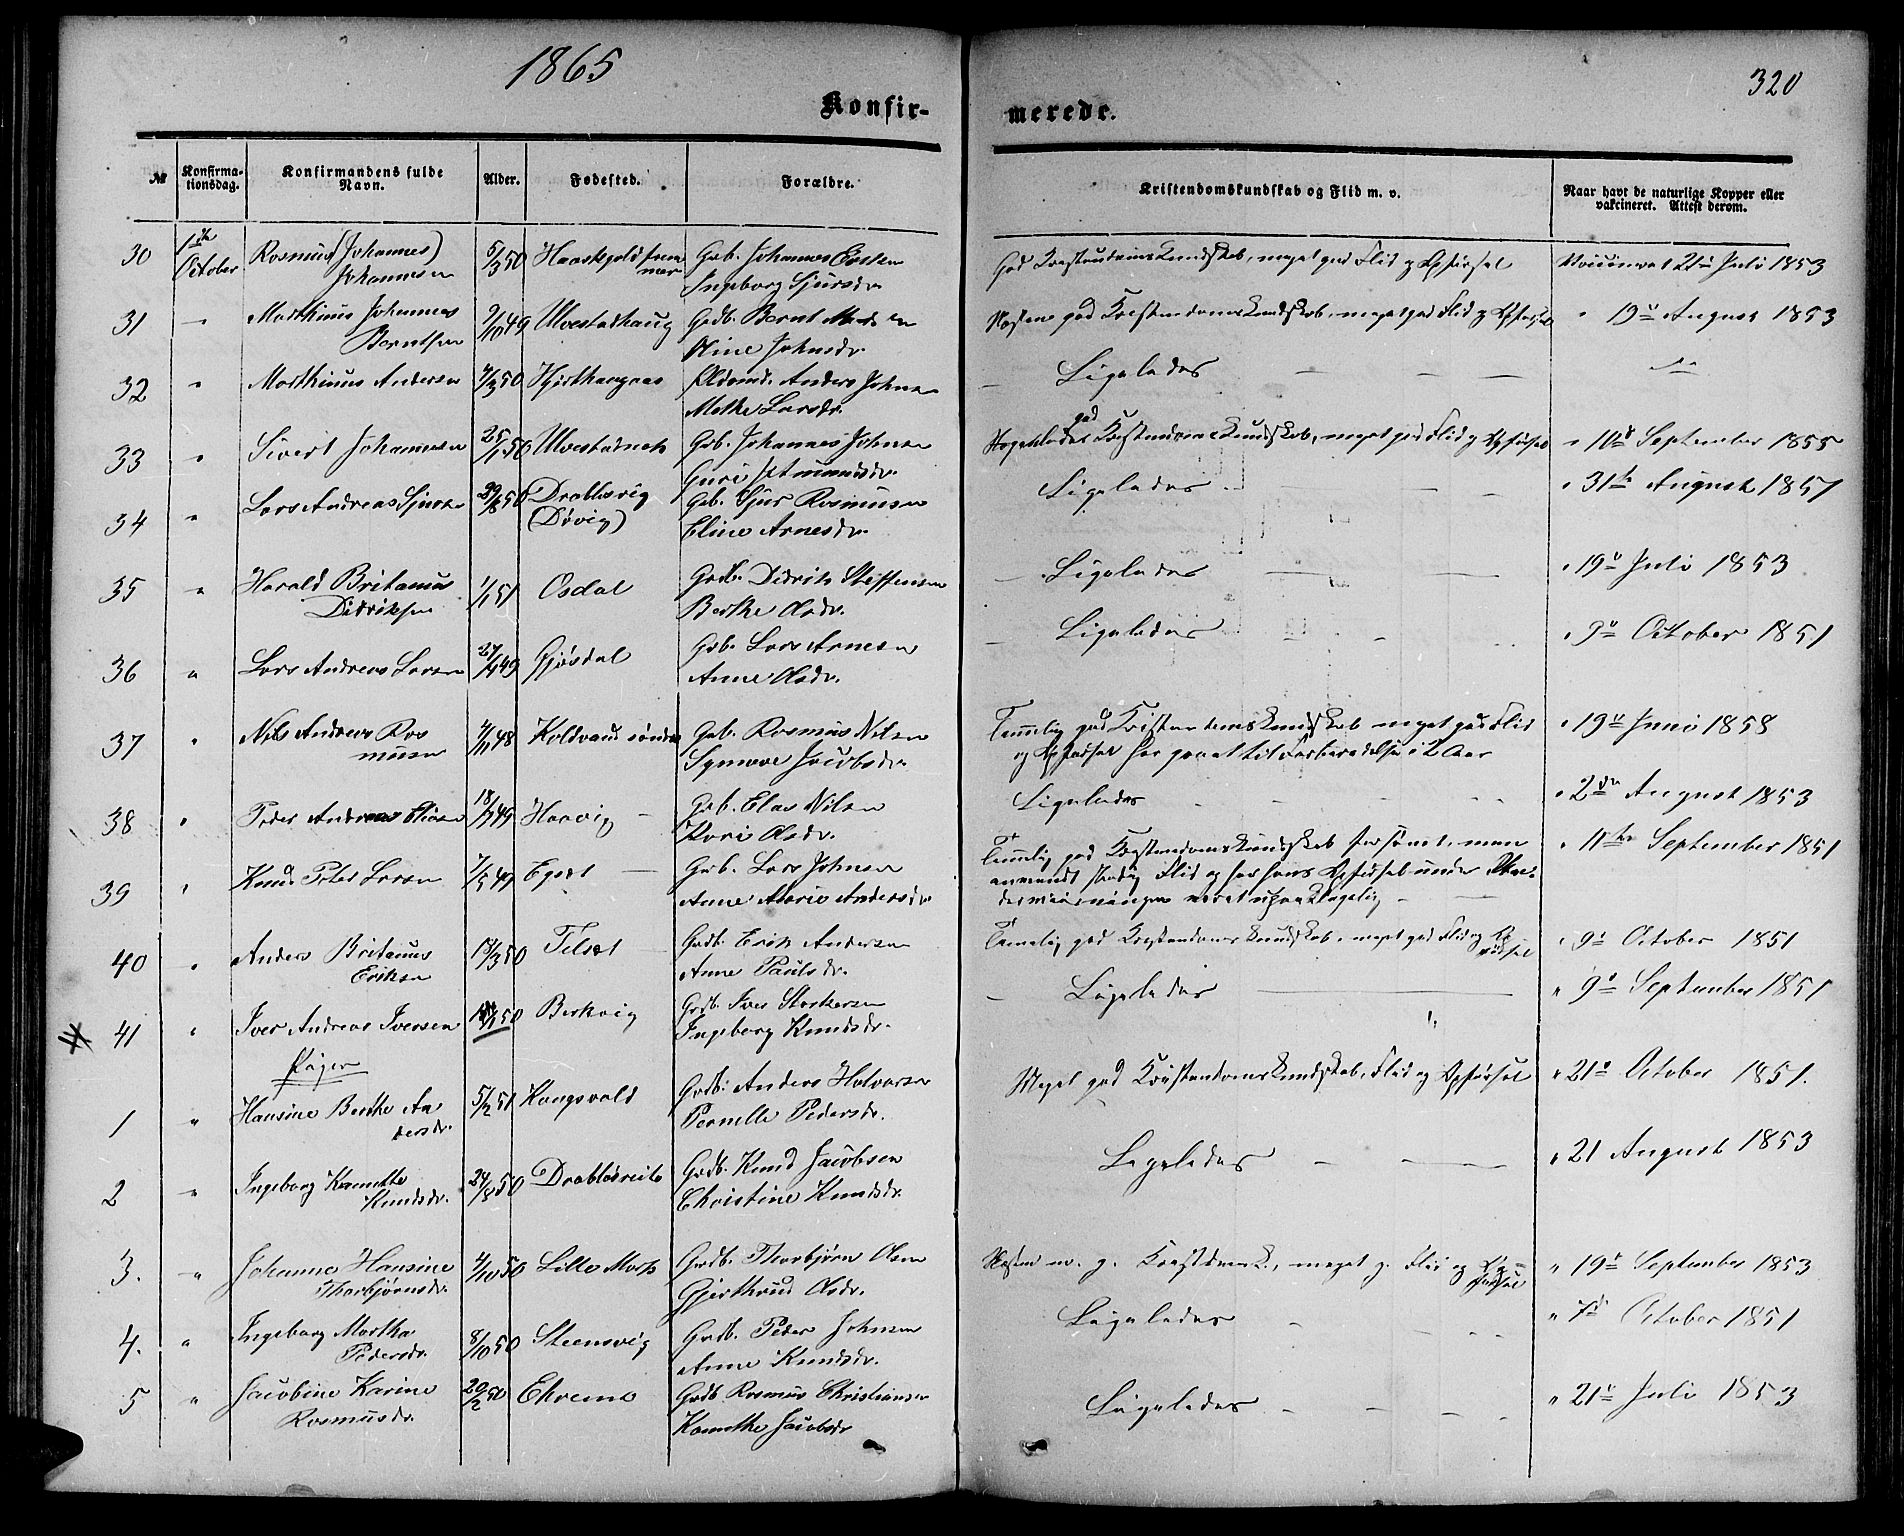 1865
320
Konfir-
merede.
№
Konfirma-
tionsdag.
Konfirmandens fulde
Navn.
Alder.
Fødested.
Forældre.
Kristendomskundskab og Flid m. v.
Naar havt de naturlige Kopper eller
vakcineret. Attest derom.
30 1ste October Rasmus (Johannes) Johannesen 6/3 50 Gab. Johannes
Ingeborg Sjursdr.
God Kristendomskundskab, meget god Flid og Opførsel Vaccineret 21de Juli 1853
31 Marthinus Johannes Berntsen 9/10 49 Ulvestadhaug Grdb. Bernt
Oline Johnsdr.
Næsten god Kristendomskundskab, meget god Flid og Opførsel " 19de August 1853
32 " Marthinus Andersen 4/3 50 Anders Johnsen
Methe Larsdr.
Ligeledes
33 " Sivert Johannesen 25/1 50 Gab. Johannes Johnsen
Guri
god Kristendomskundskab, meget god Flid og Opførsel " September 1855
34 " Lars Andreas Sjursen 29/8 50 Drabløsvig
(Døvig) Gab. Sjur Rasmusen
Eline Arnesdr.
Ligeledes " 31te August 1857
35 " Harald Britanus Didriksen 1/1 51 Osdal Grdb. Didrik Steffensen
Berthe Olsdr.
Ligeledes " 19de Juli 1853
36 " Lars Andreas Larsen 49 Gjøsdal Gab. Lars Arnesen
Anne Olsdr.
Ligeledes " 9de October 1851
37 " Nils Andreas Rasmusen 4/11 48 Koldvaad søndre Gab. Rasmus Nilsen
Synnove Jacobsdr.
Temmelig god Kristendomskundskab meget god Flid
og Opførsel har gaaet til Forberedelse i 2 Aar " 19de Juni 1858
38 " Peder Andreas Eliasen 49 Haavig Gab. Elas Nilsen
Kari Olsdr.
Ligeledes " 2den August 1853
39 " Knud Peter Larsen 7/5 49 Egset Gab. Lars Johnsen
Anne Marie Andersdr.
Temmelig god Kristendomskundskab
anvendt stadig Flid og har hans Opførsel under
været upaaklagelig " 11te September 1851
40 " Anders Britanus Eriksen 18/3 50 Grdb. Erik Andersen
Anne Paulsdr.
Temmelig god Kristendomskundskab, meget god Flid og Opførsel " 9de October 1851
41 " Iver Andreas Iversen 50 Berkvig Grdb. Iver
Ingeborg Knudsdr.
Ligeledes " 9de September 1851
Piger
1 " Hansine Berthe Andersdr. 5/2 51 Kongsvold Grdb. Anders Halvorsen
Pernelle Pedersdr.
Meget god Kristendomskundskab, Flid og Opførsel " 21de October 1851.
2 " Ingeborg Kanutte Knudsdr. 24/8 50 Grdb. Knud Jacobsen
Christine Knudsdr.
Ligeledes " 21 August 1853
3. " Johanna Hansine Thorbjørnsdr. 4/10 50 Lille Mork Grdb. Thorbjørn Olsen
Gjerthrud Olsdr.
Næsten m. g. Kristdmsk., meget g. Flid og Opførsel " 19de September 1853
4. " Ingeborg Martha Pedersdr. 8/10 50 Steensvig Grdb. Peder Johnsen
Anne Knudsdr.
Ligeledes " 7de October 1851
5 " Jacobine Karine Rasmusdr. 20/2 50 Ekrem Grdb Rasmus Christiansen
Kanutte Jacobsdr
Ligeledes " 21de Juli 1853